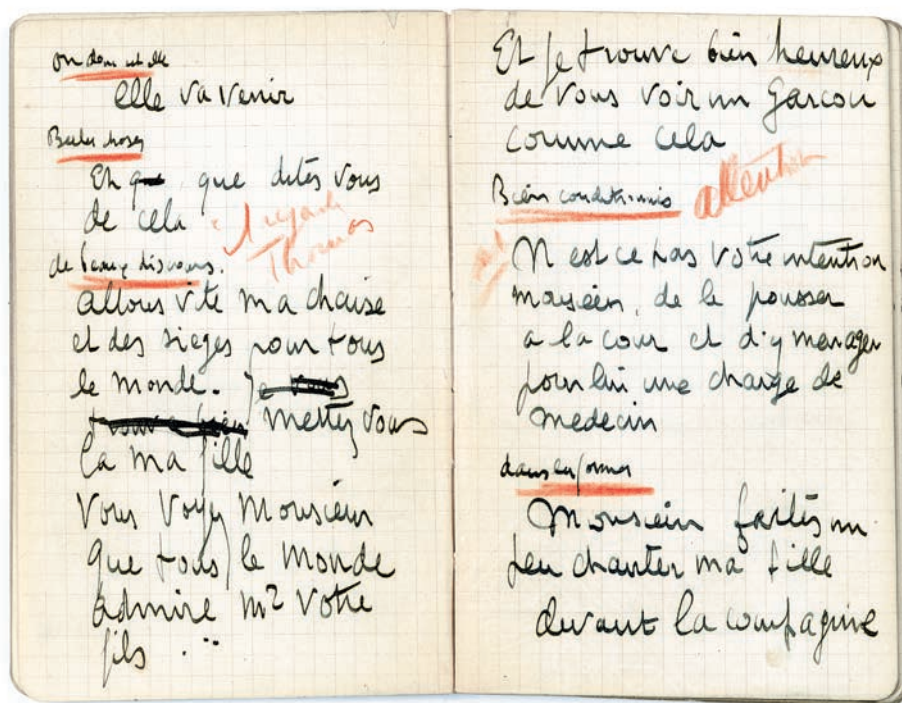 on donc est elle
elle va venir
Belles choses
Eh que que dites vous
de cela regarde
Thomas
de beaux discours.
allons vite ma chaise
et des sieges pour tous
le monde. Je vous
trouve bien mettez vous
la ma fille
Vous voyez Monsieur
que tous le monde
admire Mr votre
fils ...
Et je trouve bien heureux
de vous voir un Garcon
comme cela
Bien conditionnés attention
N est ce pas votre intention
monsieur, de le pousser
a la cour et d'y menager
pour lui une charge de
medecin
dans les formes
Monsieur faites un
peu chanter ma fille
devant la compagnie